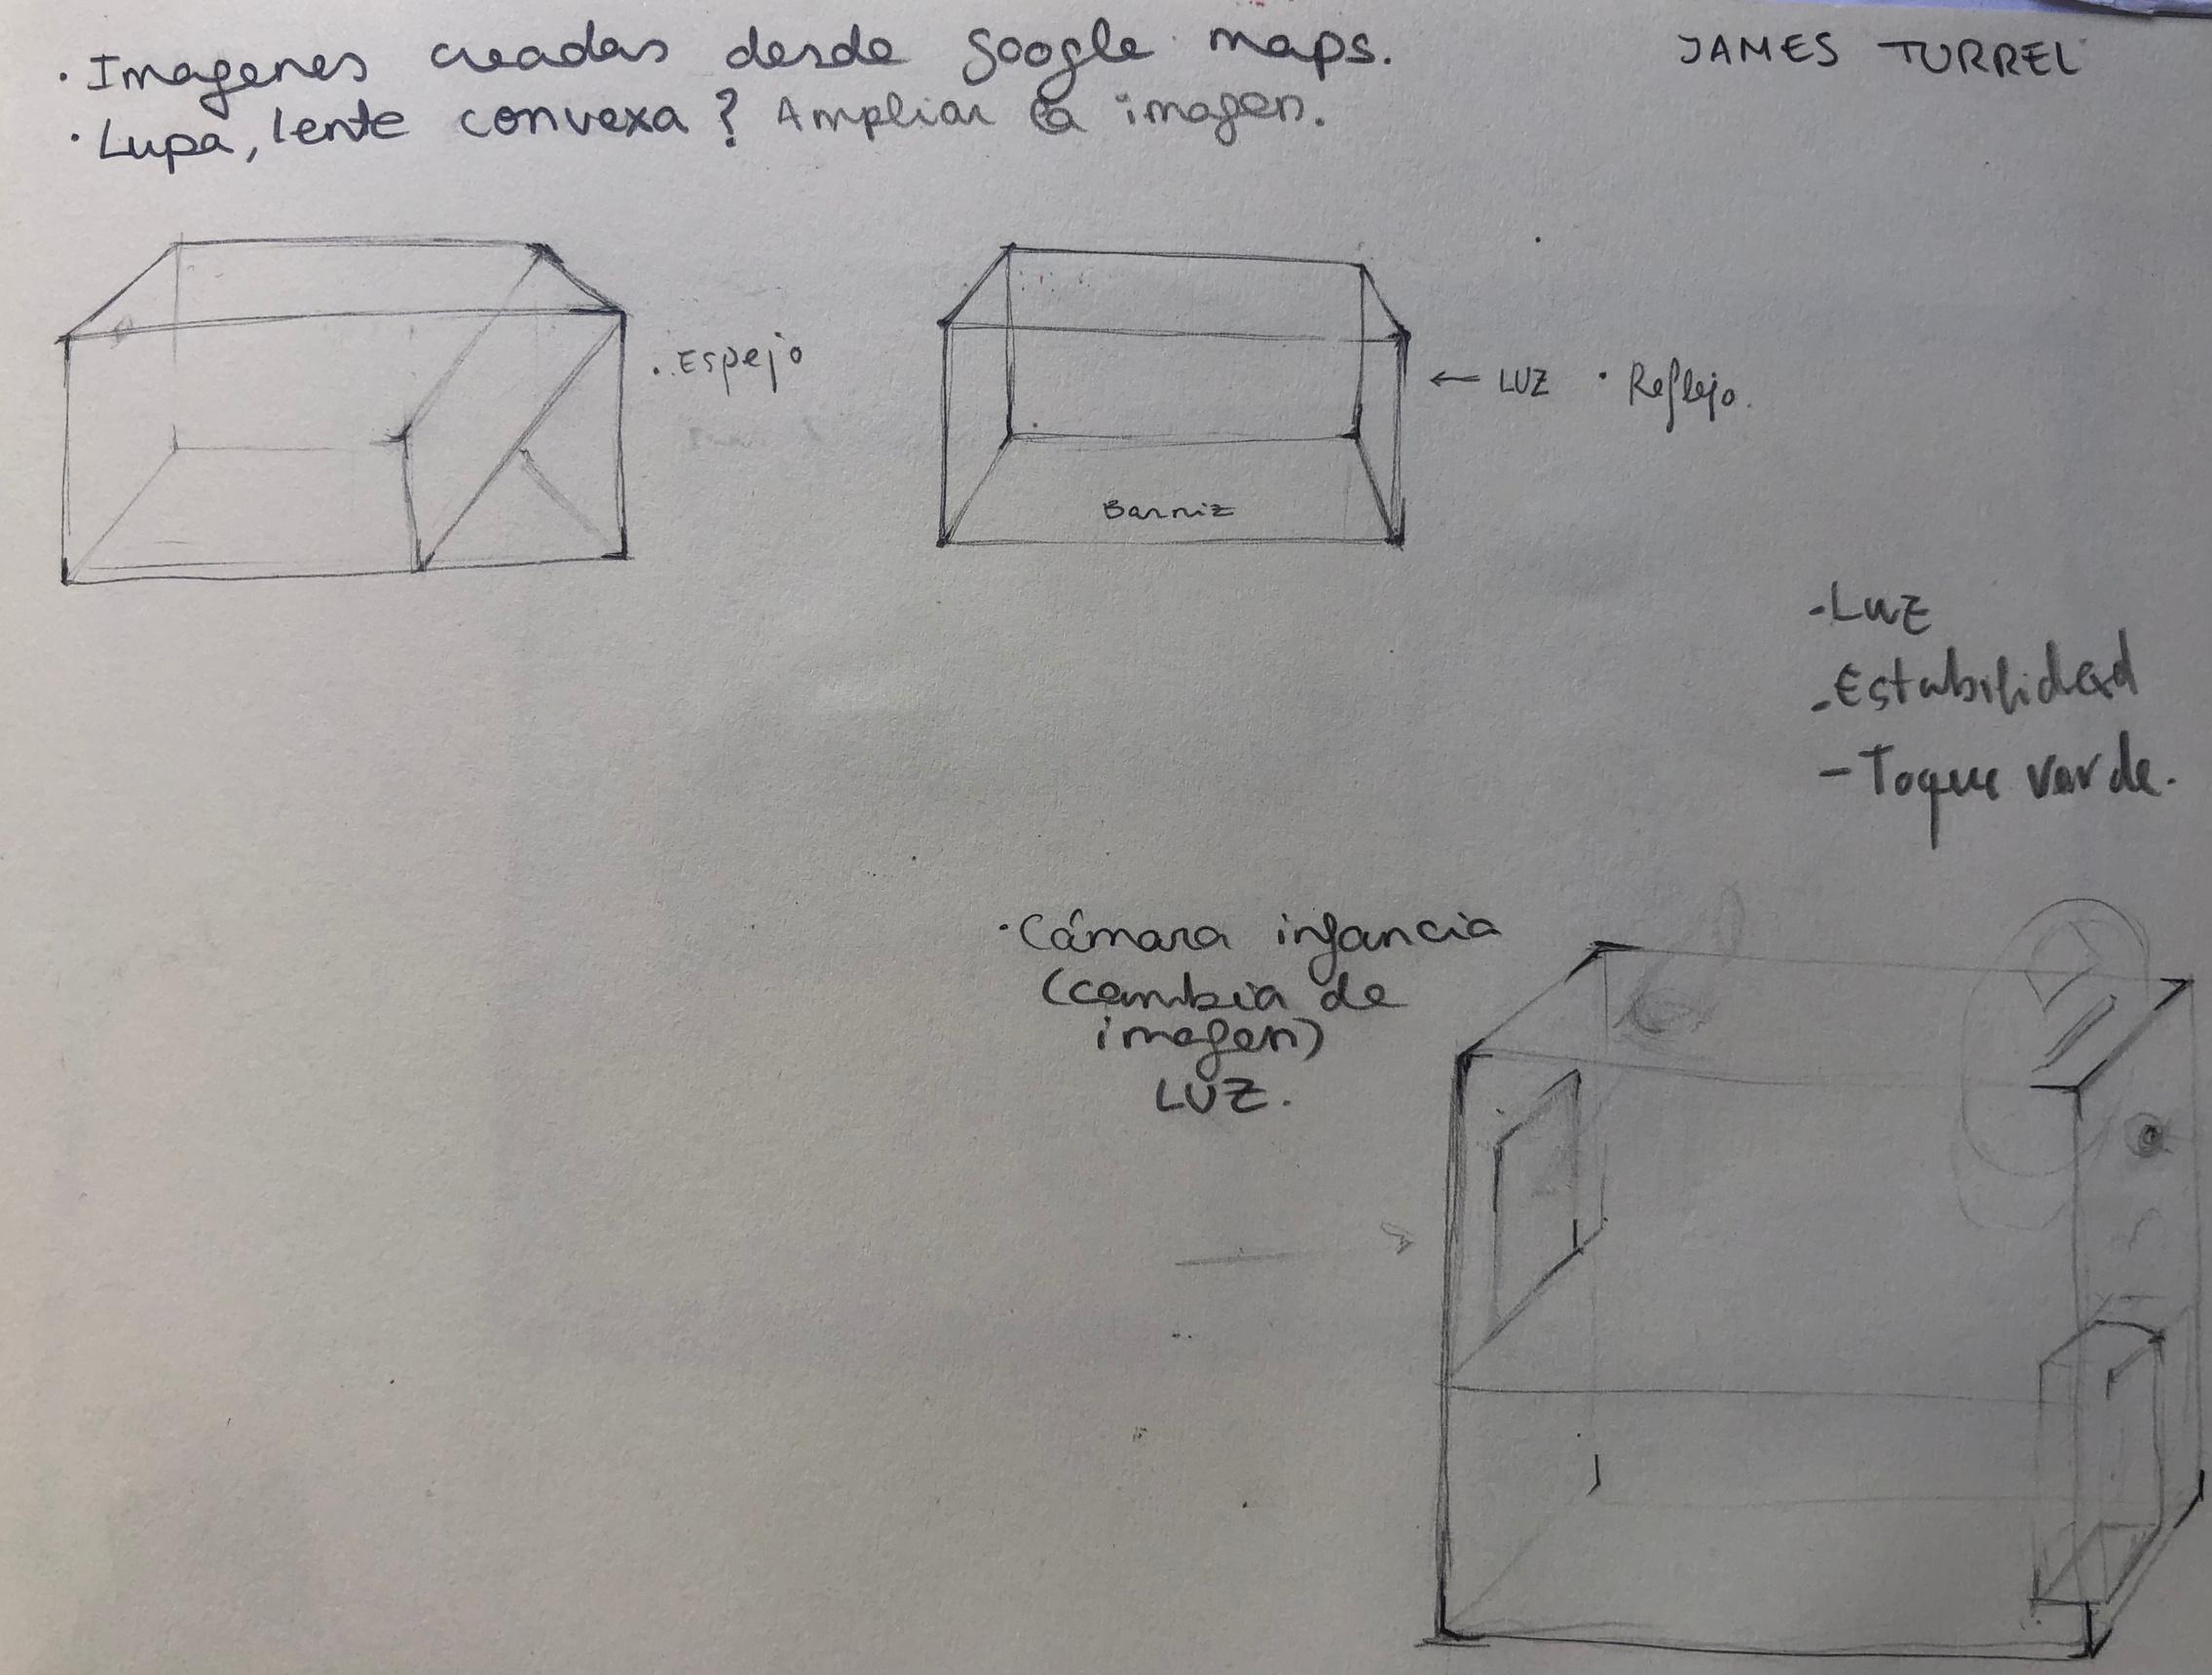 · Imagenes creadas desde google maps.
JAMES TURREL
· Lupa, lente convexa? Ampliar la imagen.
· Espejo
← LUZ · Reflejo.
Barniz
- Luz
- Estabilidad
- Toque verde.
· Cámara infancia
(cambia de
imagen)
LUZ.